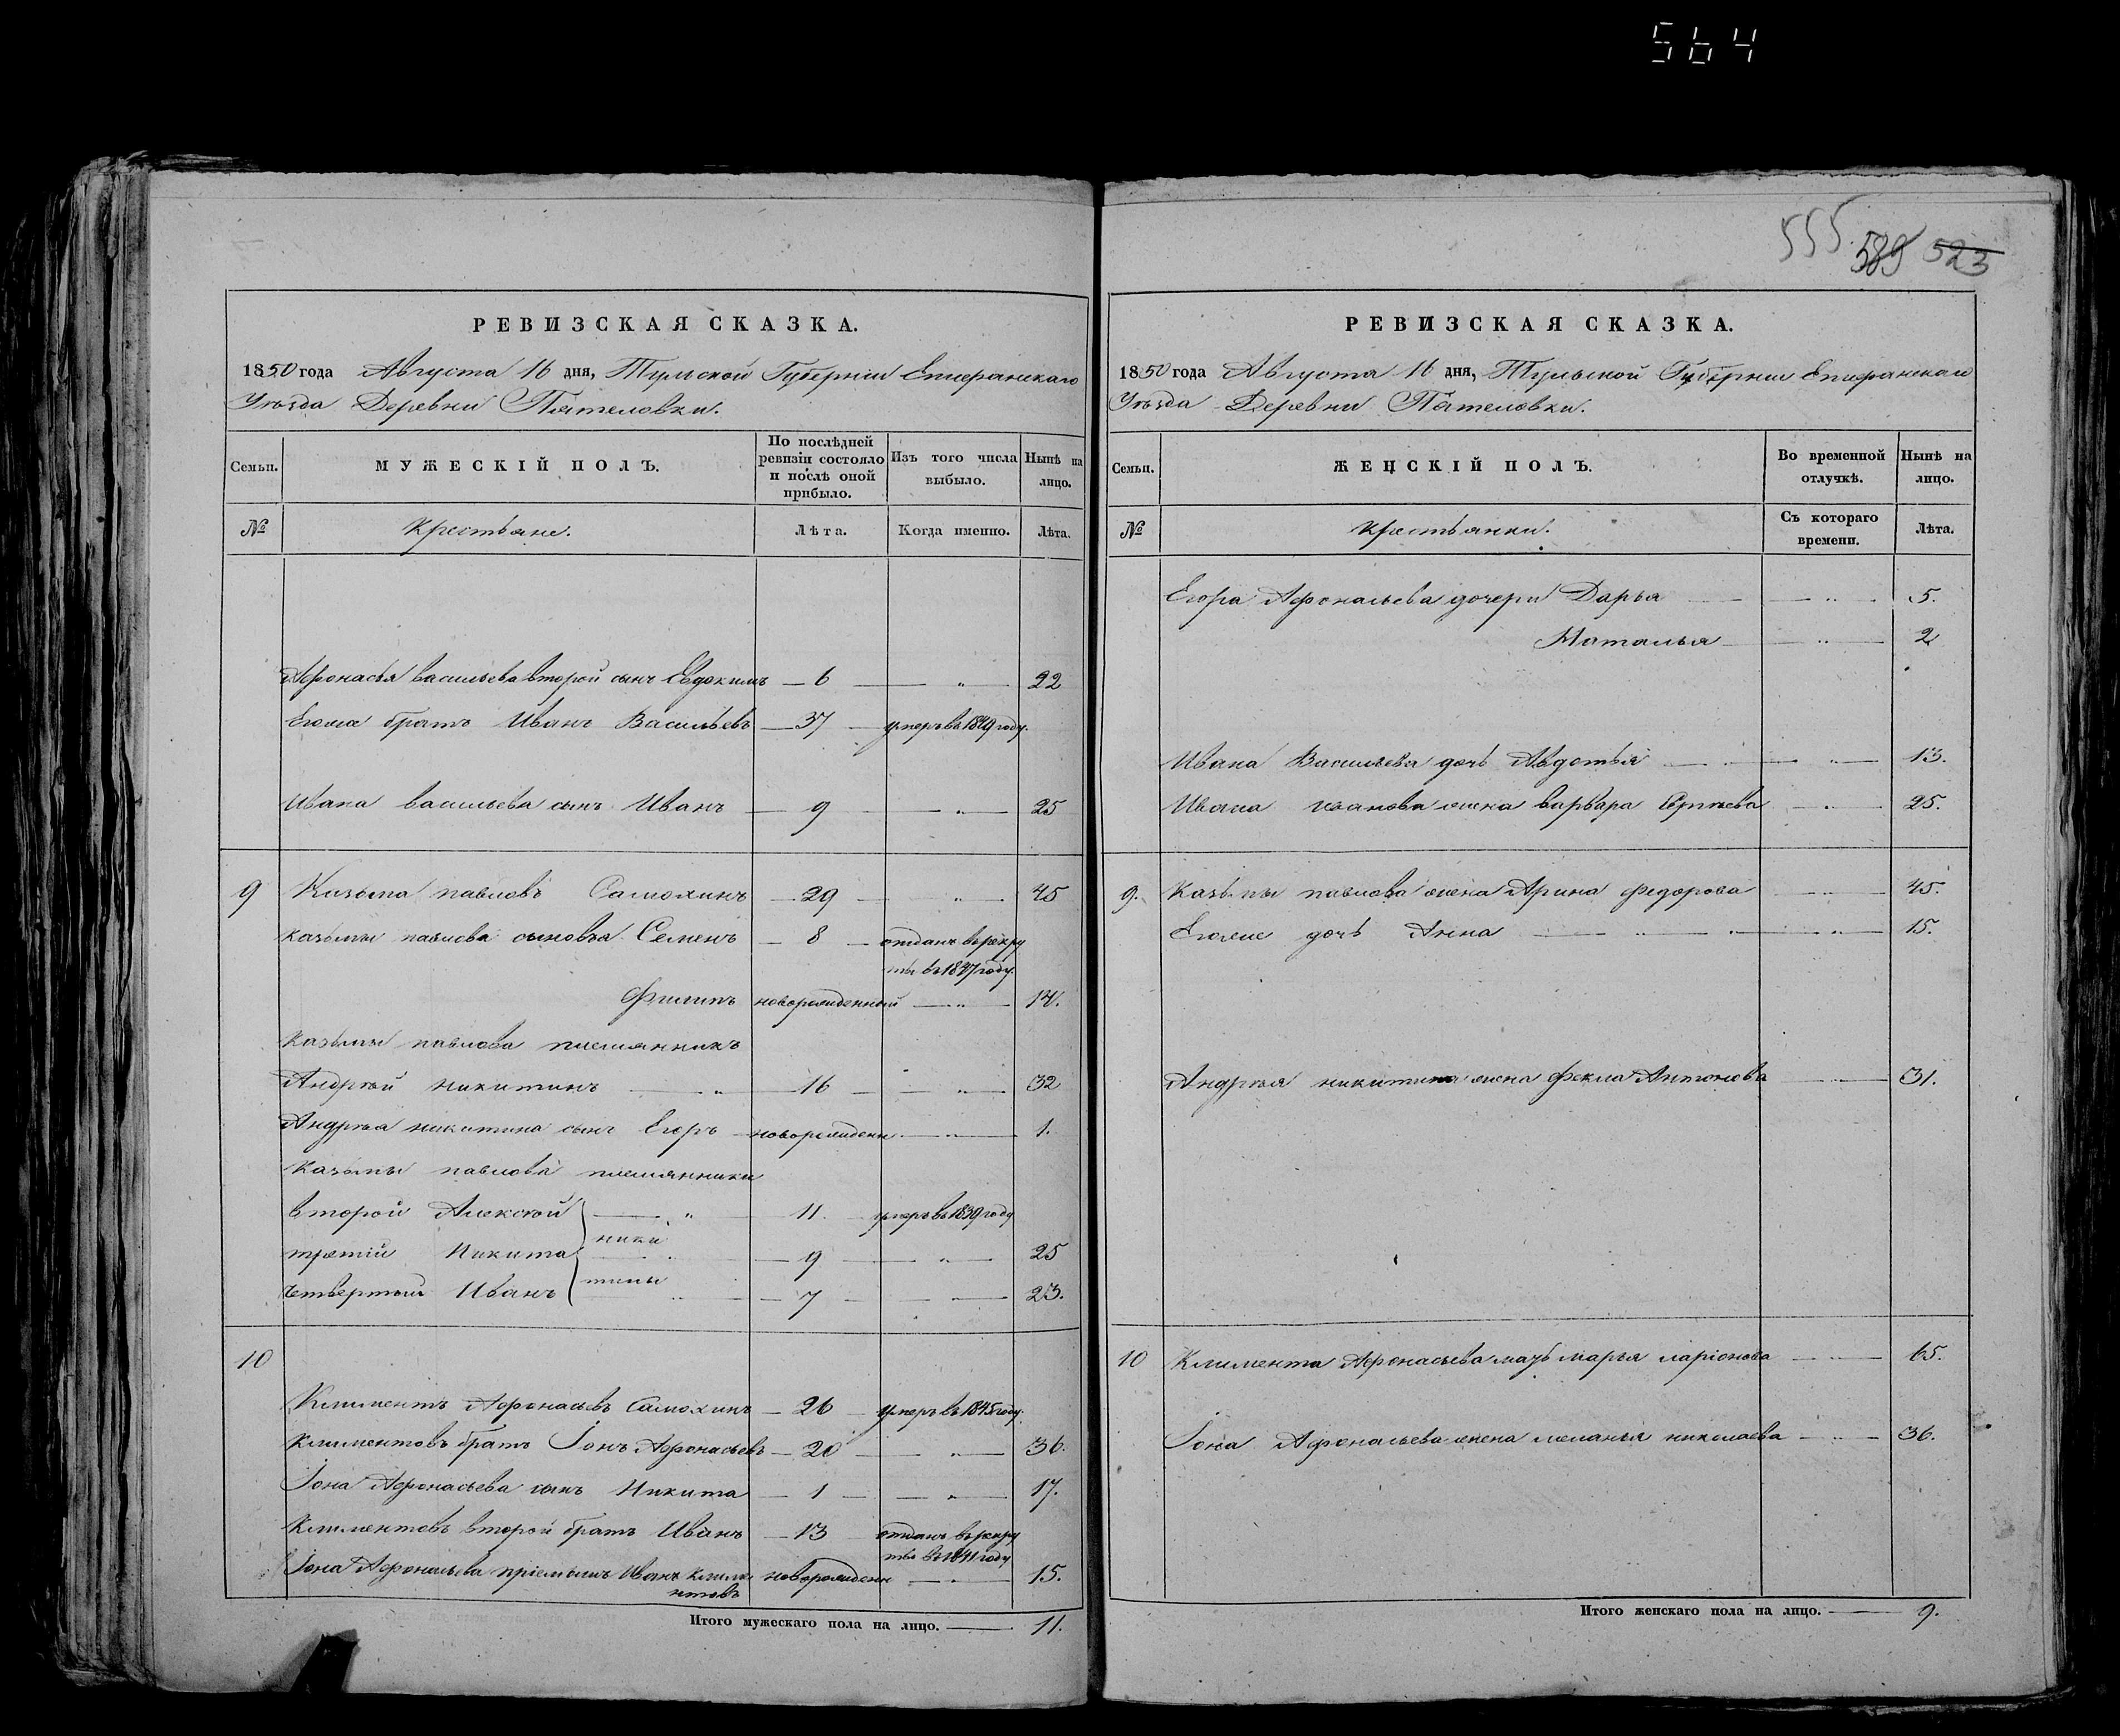 564
555. 589 523
РЕВИЗСКАЯ СКАЗКА.
1850 года Августа 16 дня, Тульской Губерніи Епифанскаго
Уѣзда Деревни Пятеловки.
Семьи. МУЖЕСКІЙ ПОЛЪ. По послѣдней ревизіи состояло и послѣ оной прибыло. Изъ того числа выбыло. Нынѣ на лицо.
№ Крестьяне. Лѣта. Когда именно. Лѣта.
Афонасья васильева второй сынъ Евдокимъ — 6 — " — 22
Егома братъ Иванъ Васильевъ — 37 — умеръ въ 1849 году.
Ивана васильева сынъ Иванъ — 9 — " — 25
9 Козьма павловъ Самохинъ — 29 — " — 45
Козьмы павлова сыновья Семенъ — 8 — отданъ въ рекру
ты въ 1847 году.
Филипъ новорожденный — " — 14.
Козьмы павлова племянникъ
Андрей никитинъ — " — 16 — " — 32
Андрея никитина сынъ Егоръ — новорожденн — " — 1.
Козьмы павлова племянники
второй Алексей — " — 11. — умеръ въ 1839 году
ники
третій Никита — " — 9 — " — 25
тины
четвертый Иванъ — " — 7 — " — 23.
10
Климентъ Афонасьевъ Самохинъ — 26 — умеръ въ 1845 году.
Климентовъ братъ Іонъ Афонасьевъ — 20 — " — 36.
Іона Афонасьева сынъ Никита — 1 — " — 17.
Климентовъ второй братъ Иванъ — 13 отданъ въ рекру
ты въ 1841 году
Іона Афонасьева пріемышъ Иванъ Климе новорожденн — " — 15.
нтовъ
Итого мужескаго пола на лицо. — 11.
РЕВИЗСКАЯ СКАЗКА.
1850 года Августа 16 дня, Тульской Губерніи Епифанскаго
Уѣзда Деревни Пятеловки.
Семьи. ЖЕНСКІЙ ПОЛЪ. Во временной отлучкѣ. Нынѣ на лицо.
№ Крестьянки. Съ котораго времени. Лѣта.
Егора Афонасьева дочери Дарья — " — 5.
Наталья — " — 2
Ивана Васильева дочь Авдотья — " — 13.
Ивана иванова жена варвара — " — 25.
9. Козьмы павлова жена Арина федорова — " — 45.
Егоже дочь Анна — " — 15.
Андрея никитина жена фекла Антонова — " — 31.
10 Климента Афонасьева мать марья ларіонова — " — 65.
Іона Афонасьева жена меланья николаева — " — 36.
Итого женскаго пола на лицо. — 9.